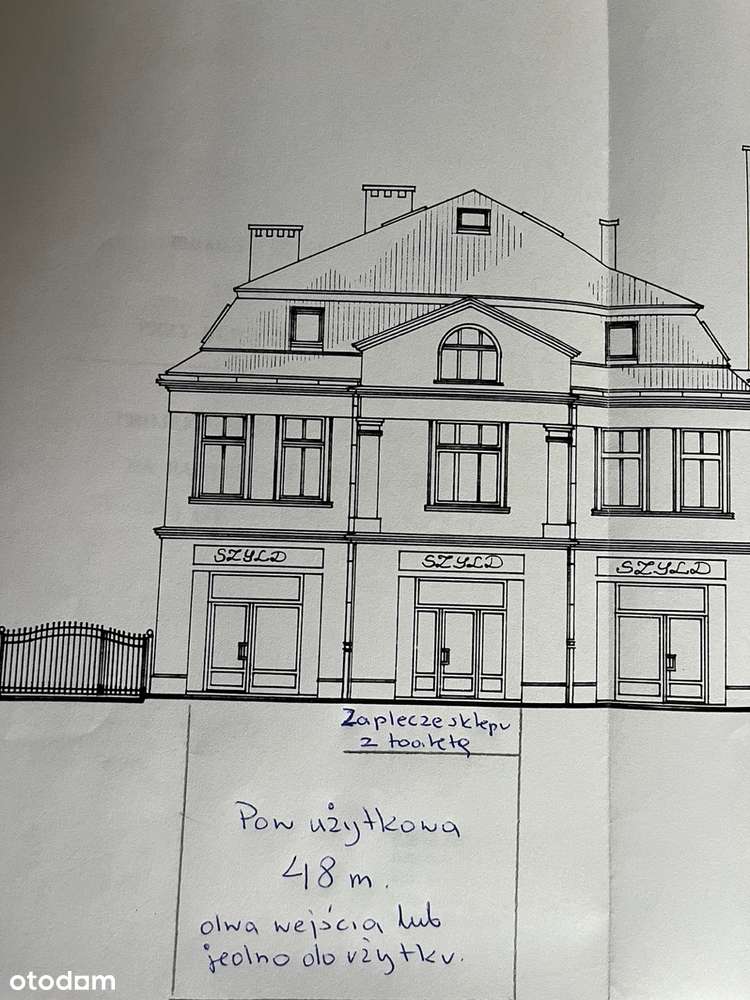 SZYLD
SZYLD
SZYLD
Zaplecze sklepu
z toaletą
Pow użytkowa
48 m.
dwa wejścia lub
jedno do użytku.
otodom